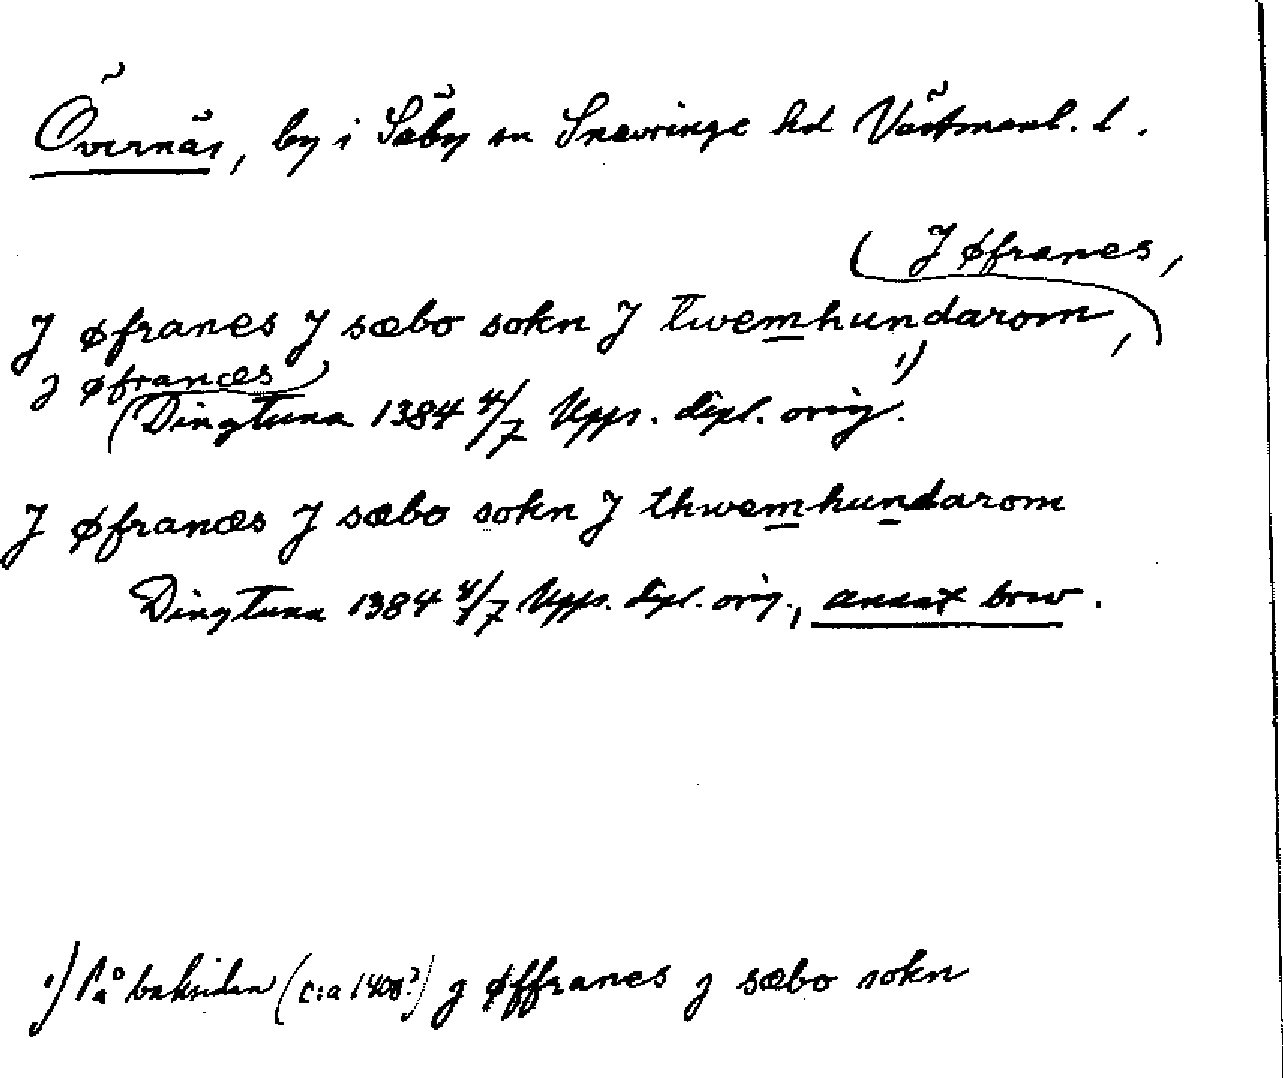 Övernäs, by i Säby sn Snevringe hd Västmanl. l.
(J øfranes,
J øfranes J sæbo sokn J twemhundarom, 1)
J øfranæs
(Dingtuna 1384 4/7 Upps. dipl. orig.
J øfranæs J sæbo sokn J thwemhundarom
Dingtuna 1384 4/7 Upps. dipl. orig., annat brev.
1) På baksidan (c:a 1400?) J øffranes J sæbo sokn